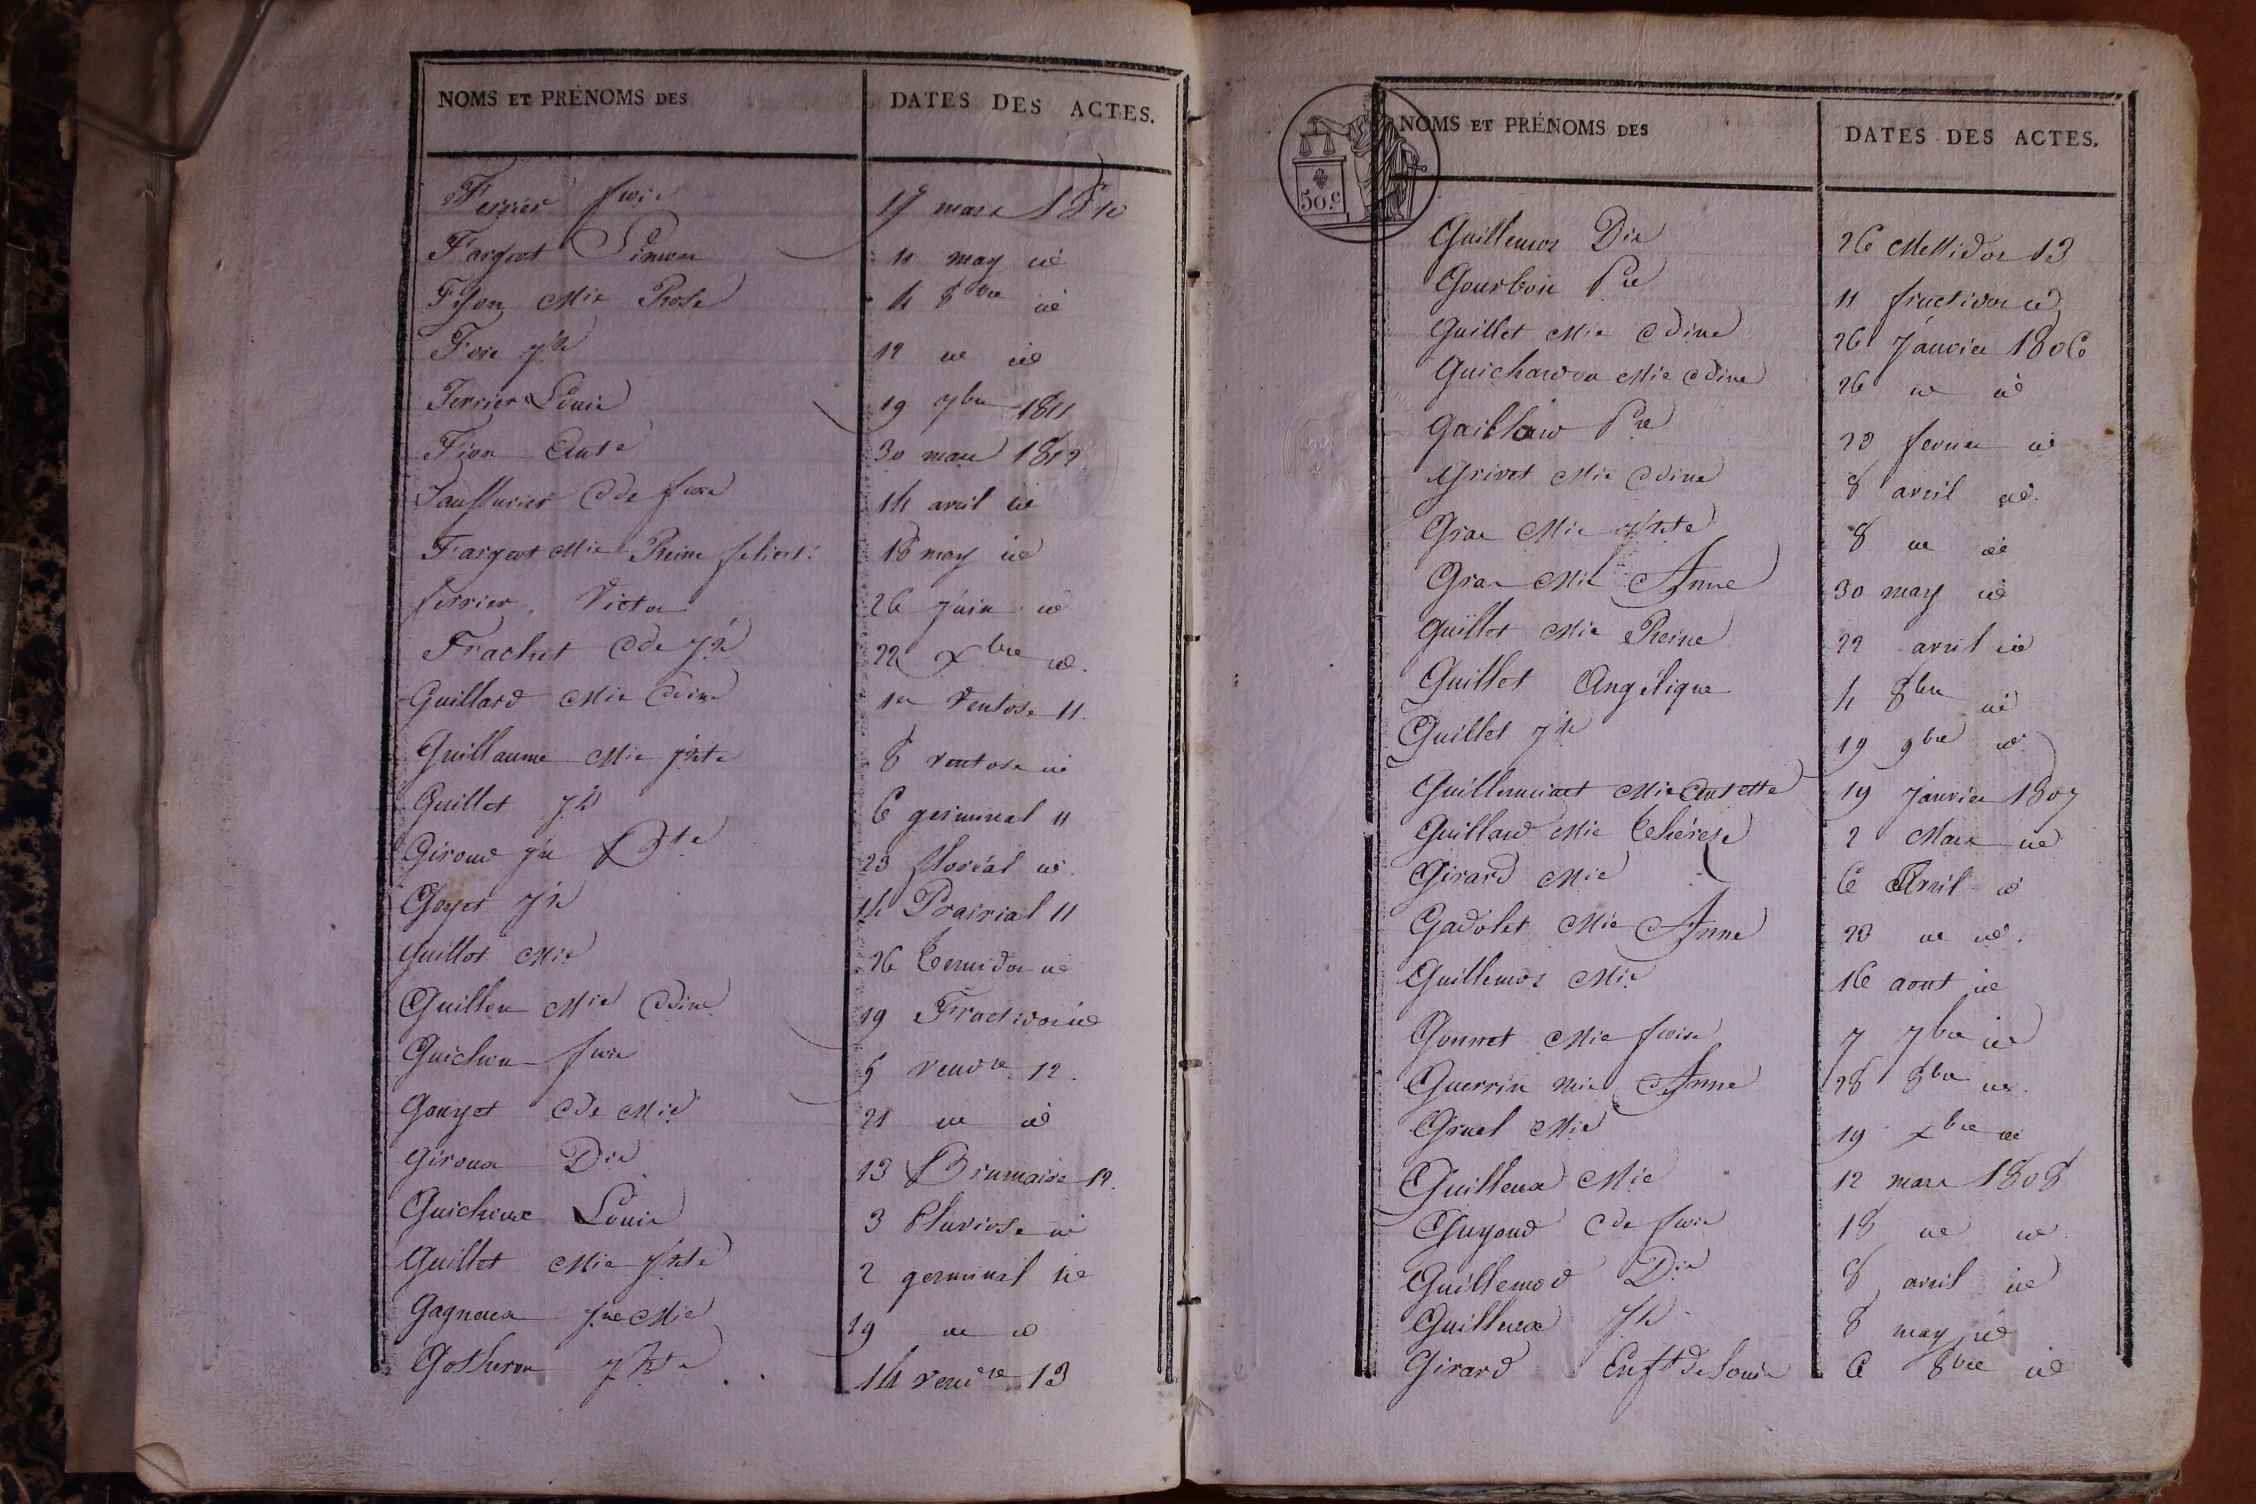 NOMS ET PRÉNOMS DES DATES DES ACTES.
Ferrier fois 17 mars 1810
Fargeot Simon 11 may id
Fison Mie Rose 4 8bre id
Foie jh 12 id id
Ferrier Louis 19 7bre 1811
Fion Ante 30 mars 1812
Cde fois 14 avril id
Fargeot Mie Reine 18 may id
ferrier Victor 26 juin id
Frachet Cde jh 22 xbre id.
Guillard Mie Cdine 1er Ventose 11.
Guillaume Mie jhte 8 ventose id
Guillet jh 6 germinal 11
Giroud jn Bte 23 floréal id.
Goyet jh 14 Prairial 11
Guillot Mie 26 Termidor id
Mie Cdine 19 Fructidor id
Guichon fois 5 vendre 12.
Gouyet Cde Mie 21 id id
Giroux Dis 13 Brumaire 12.
Louis 3 Pluviose id
Guillet Mie jhte 2 germinal id
Gagneux jne Mie 19 id id
jhte 14 vendre 13
NOMS ET PRÉNOMS DES DATES DES ACTES.
50.c
Guillemos Dis 26 Messidor 13
Gourbon Pre 11 fructidor id
Guillet Mie Cdine 26 Janvier 1806
Guichardon Mie Cdine 26 id id
Gaillard Pre 23 fevrier id
Grivet Mie Cdine 8 avril id.
Gras Mie jhte 8 id id
Gras Mie Anne 30 may id
Guillot Mie Reine 22 avril id
Guillot Angélique 4 8bre id
Guillet jh 19 9bre id.
Mie Antette 19 janvier 1807
Guillard Mie Thérese 2 Mars id
Girard Mie 6 Avril id
Gadolet Mie Anne 23 id id.
Guillemos Mie 16 aout id
Gonnet Mie foise 7 7bre id
Guerrin Mie Anne 28 8bre id.
Gruel Mie 19 xbre id
Guilleux Mie 12 mars 1808
Guyond Cde fois 18 id id.
Guillemod Dis 8 avril id
Guilleux jh 8 may id
Girard Enft de Louis 6 8bre id